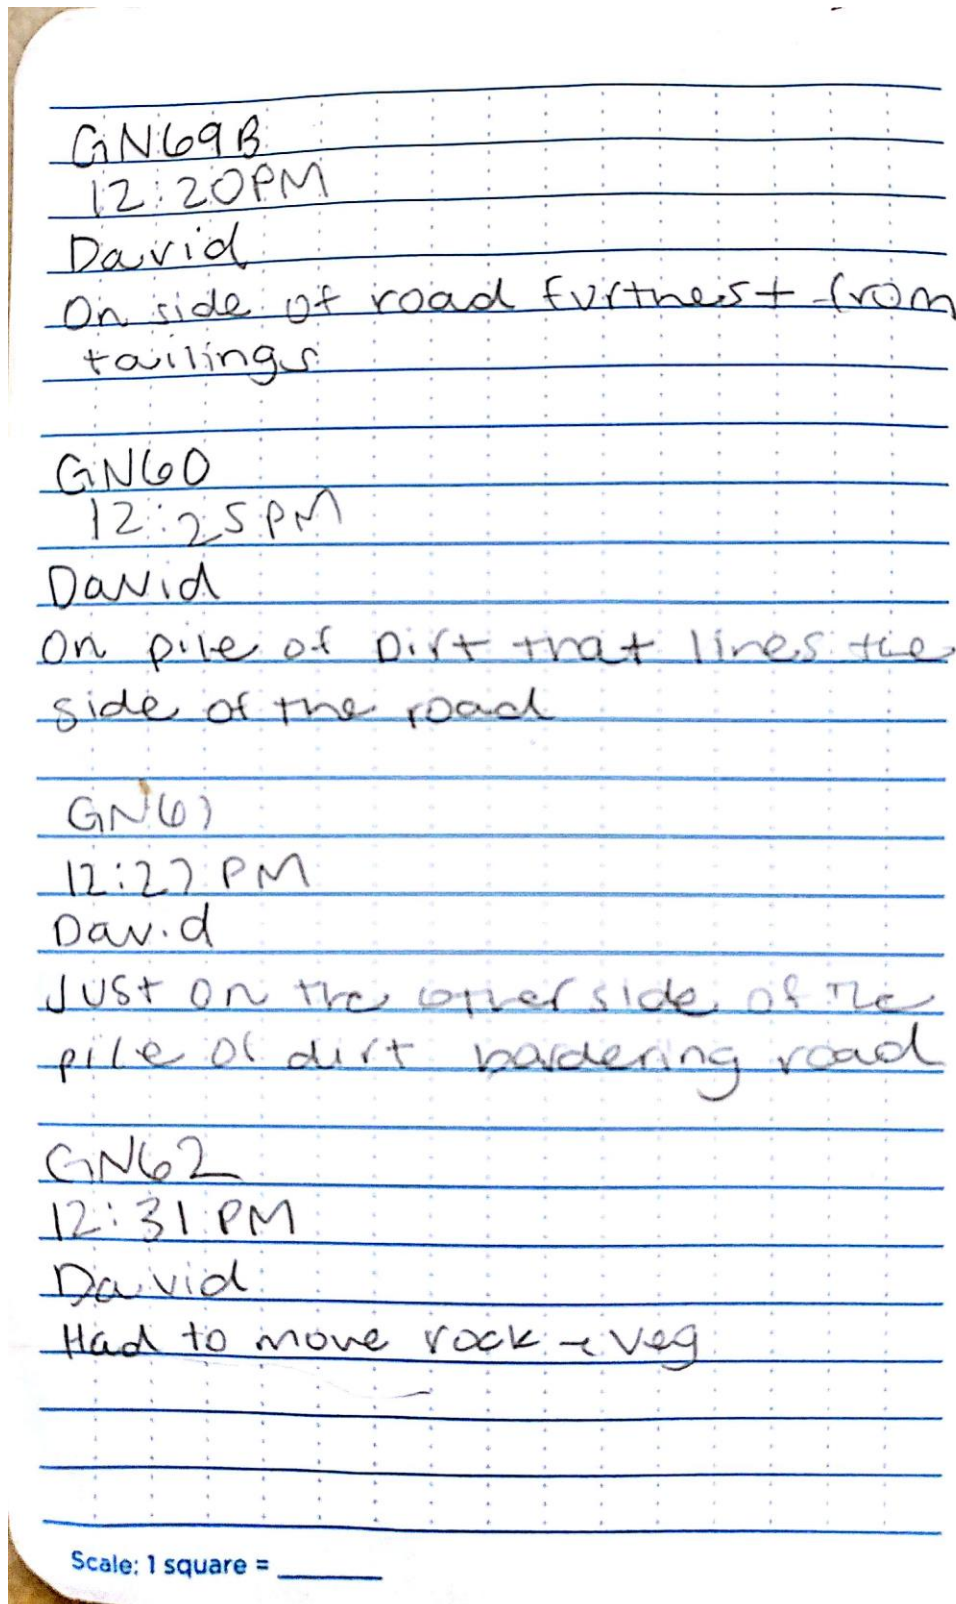 GN69B
12:20PM
David
On side of road furthest from
tailings
GN60
12:25PM
David
On pile of Dirt that lines the
side of the road
GN61
12:27 PM
David
Just on the other side of the
pile of dirt bordering road
GN62
12:31 PM
David
Had to move rock + veg
Scale: 1 square = ____